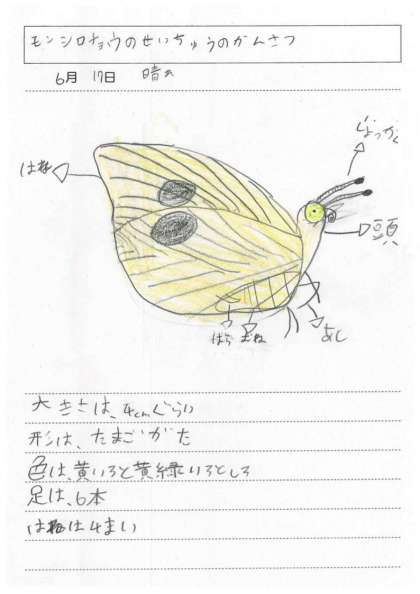 モンシロチョウのせいちゅうのかんさつ
6月 17日 晴
しょっかく
はね
頭
はら むね あし
大きさは、4cmぐらい
形は、たまごがた
色は、黄いろと黄緑いろとしろ
足は、6本
はねは4まい